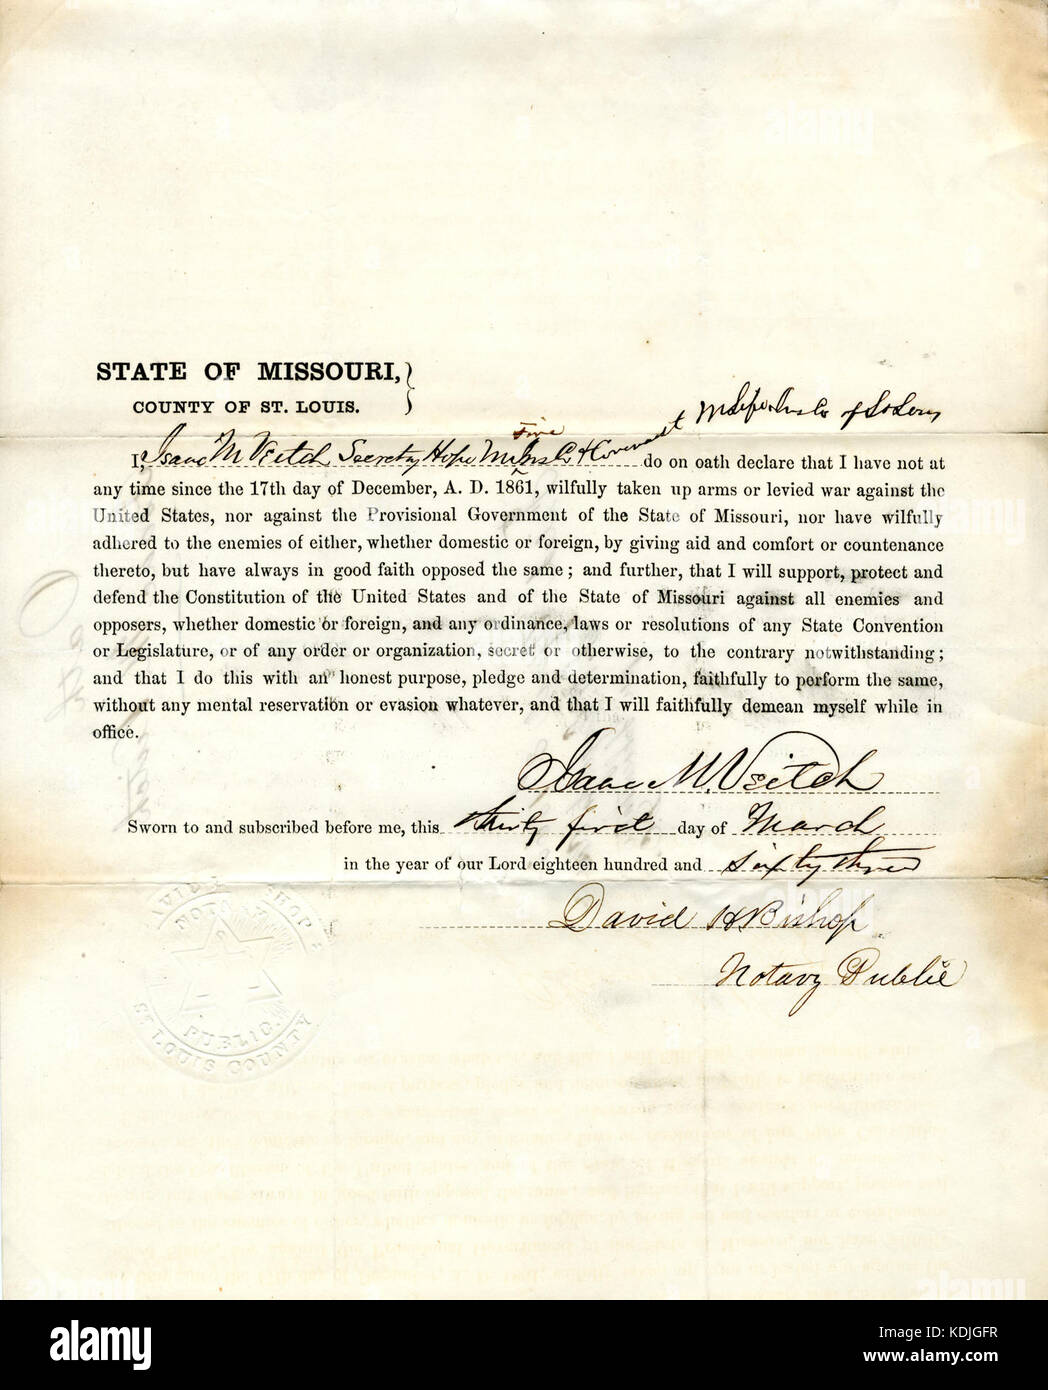 STATE OF MISSOURI,
COUNTY OF ST. LOUIS.
M Life Ins Co of St Louis
Fire
I, Isaac M Veitch Secretary Hope M Ins Co & Covenant do on oath declare that I have not at
any time since the 17th day of December, A. D. 1861, wilfully taken up arms or levied war against the
United States, nor against the Provisional Government of the State of Missouri, nor have wilfully
adhered to the enemies of either, whether domestic or foreign, by giving aid and comfort or countenance
thereto, but have always in good faith opposed the same; and further, that I will support, protect and
defend the Constitution of the United States and of the State of Missouri against all enemies and
opposers, whether domestic or foreign, and any ordinance, laws or resolutions of any State Convention
or Legislature, or of any order or organization, secret or otherwise, to the contrary notwithstanding;
and that I do this with an honest purpose, pledge and determination, faithfully to perform the same,
without any mental reservation or evasion whatever, and that I will faithfully demean myself while in
office.
Isaac M. Veitch
Sworn to and subscribed before me, this thirty first day of March
in the year of our Lord eighteen hundred and sixty three
David H Bishop
Notary Public
NOTARY
PUBLIC.
ST. LOUIS COUNTY
alamy
Image ID: KDJGFR
www.alamy.com